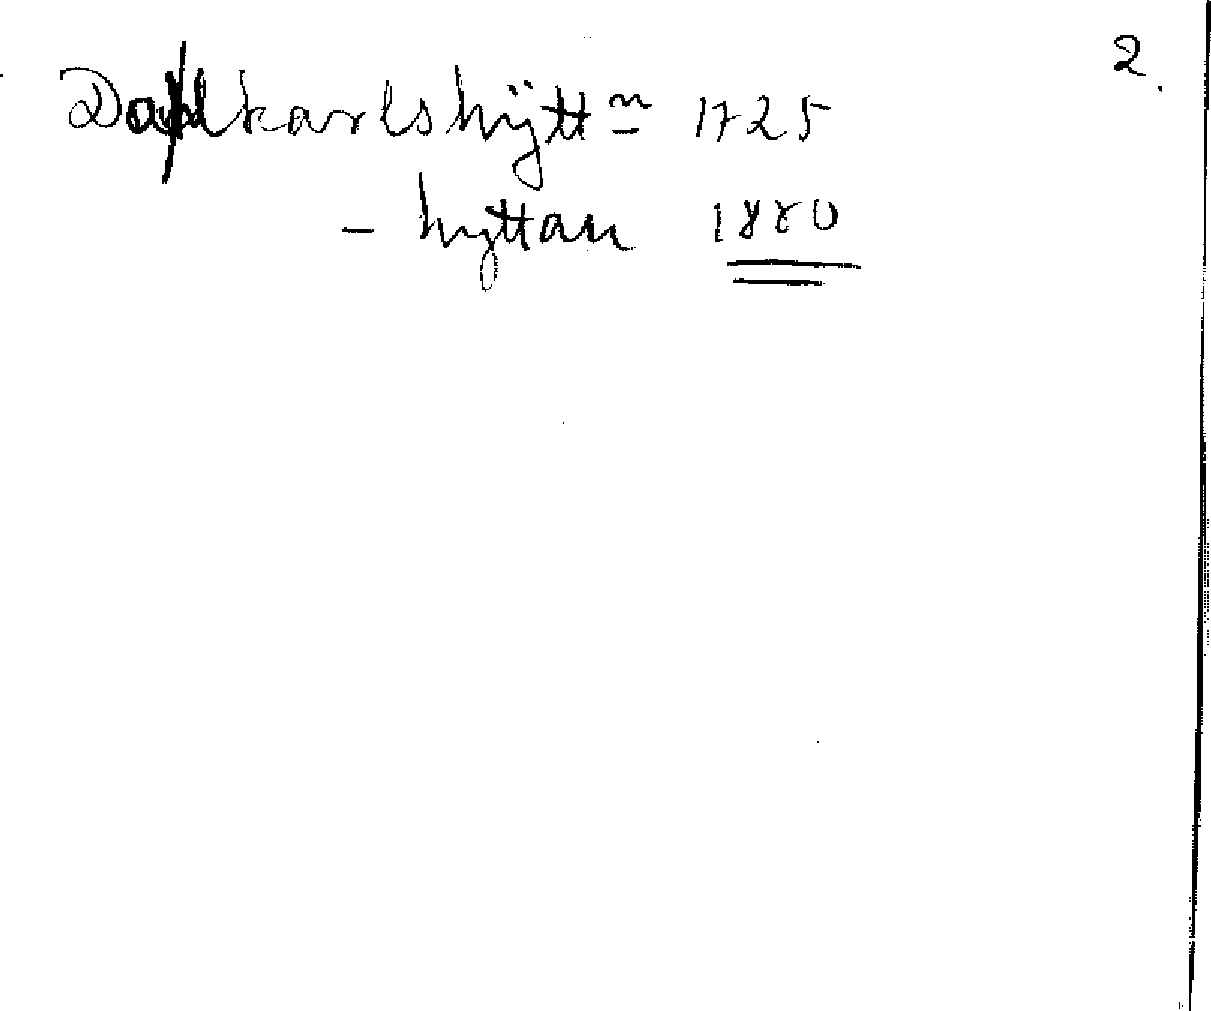 2.
Dahlkarlshÿttⁿ 1725
- hyttan 1880